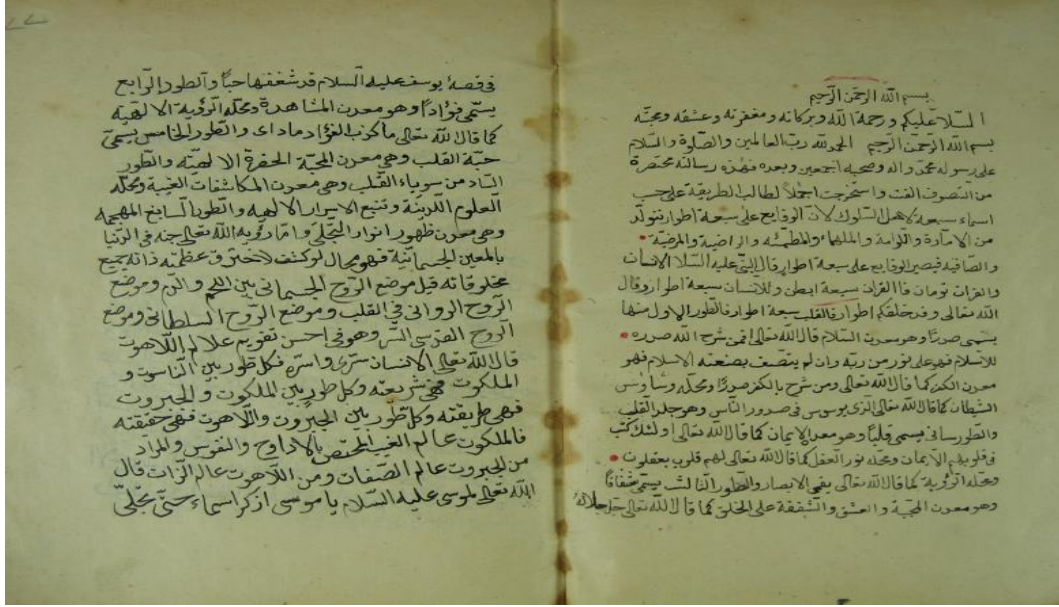 بسم الله الرحمن الرحيم
السلا عليكم ورحمة الله وبركاته ومغفرته وعشقه ومحبته
بسم الله الرحمن الرحيم الحمد لله رب العالمين والصلوة والسلام
على رسوله محمد واله وصحبه اجمعين وبعده فهذه رسالة مختصرة
من التصوف الفت واستخرجت اجملا لطالب الطريقة على حسب
اسماء سبعة لاهل السلوك لان الوقايع على سبعة اطوار فتولد
من الامارة واللوامة والملهماء والمطمئنه والراضية والمرضية
والصافيه فيصير الوقايع على سبعة اطوار قال النبي عليه السلا الانسان
والقران تومان فاالقران سبعة ابطن وللانسان سبعة اطوار وقال
الله تعالى وقد خلقكم اطوارا فالقلب سبعة اطوار فالطور الاول منها
يسمى صدرا وهو معدن السلام قال الله تعالى افمن شرح الله صدره
للاسلام فهو على نور من ربه وان لم يتصف بصنعته الاسلام فهو
معدن الكفر كما قال الله تعالى ومن شرح بالكفر صدرا ومحله وساوس
الشيطان كما قال الله تعالى الذى يوسوس فى صدور الناس وهو جلد القلب
والطور سانى يسمى قلبا وهو معدن الايمان كما قال الله تعالى اولئك كتب
فى قلوبهم الايمان ومحله نور العقل كما قال الله تعالى لهم قلوب يعقلون
ومحله الرؤية كما قال الله تعالى يفمى الابصار والطور الثالث يسمى شغفافا
وهو معدن المحبة والعشق والشفقة على الخلق كما قال الله تعالى جل جلاله
فى قصة يوسف عليه السلام قد شغفها حبا والطور الرابع
يسمى فؤادا وهو معدن المشاهدة ومحله الرؤية الالهية
كما قال الله تعالى ما كذب الفؤاد ماداى والطور الخامس يسمى
حبة القلب وهى معدن المحبة الحضرة الالهية والطور
الساد من سوياء القلب وهى معدن المكاشفات الغيبة ومحله
العلوم اللدينة وتنبع الاسرار الالهيه والطور السابع المهجمه
وهى معدن ظهور انوار التجلى واما رؤية الله تعالى جنه فى الدنيا
بالمعين الجسمانية فهو محال لو كشف لاحترق عظمته ذاته جميع
مخلوقاته قيل موضع الروح الجسمانى بين اللحم والدم وموضع
الروح الروانى فى القلب وموضع الروح السلطانى وموضع
الروح القدسى السر وهو فى احسن تقويم علالم اللاهوت
قال الله تعالى الانسان سترى واسره فكل طور بين الناسوت و
الملكوت فهى شريعته وكل طور بين الملكوت والجبروت
فهى طريقته وكل طور بين الجبروت واللاهوت فهى حقيقته
فالملكوت عالم الغيب المختص بالاداوح والنفوس والمراد
من الجبروت عالم الصفات ومن اللاهوت عالم الذات قال
الله تعالى لموسى عليه السلام يا موسى اذكر اسماء حتى تجلى